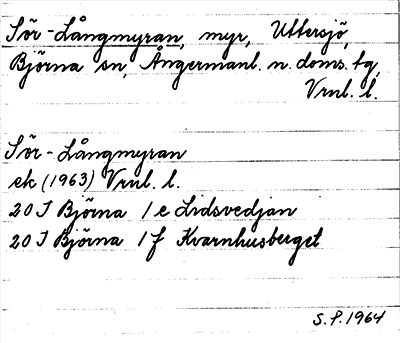 Sör-Långmyran, myr, Uttersjö,
Björna sn, Ångermanl. n. doms. tg,
Vrnl. l.
Sör-Långmyran
ek (1963) Vrnl. l.
20 J Björna 1 e Lidsvedjan
20 J Björna 1 f Kvarnhusberget
S.P. 1964